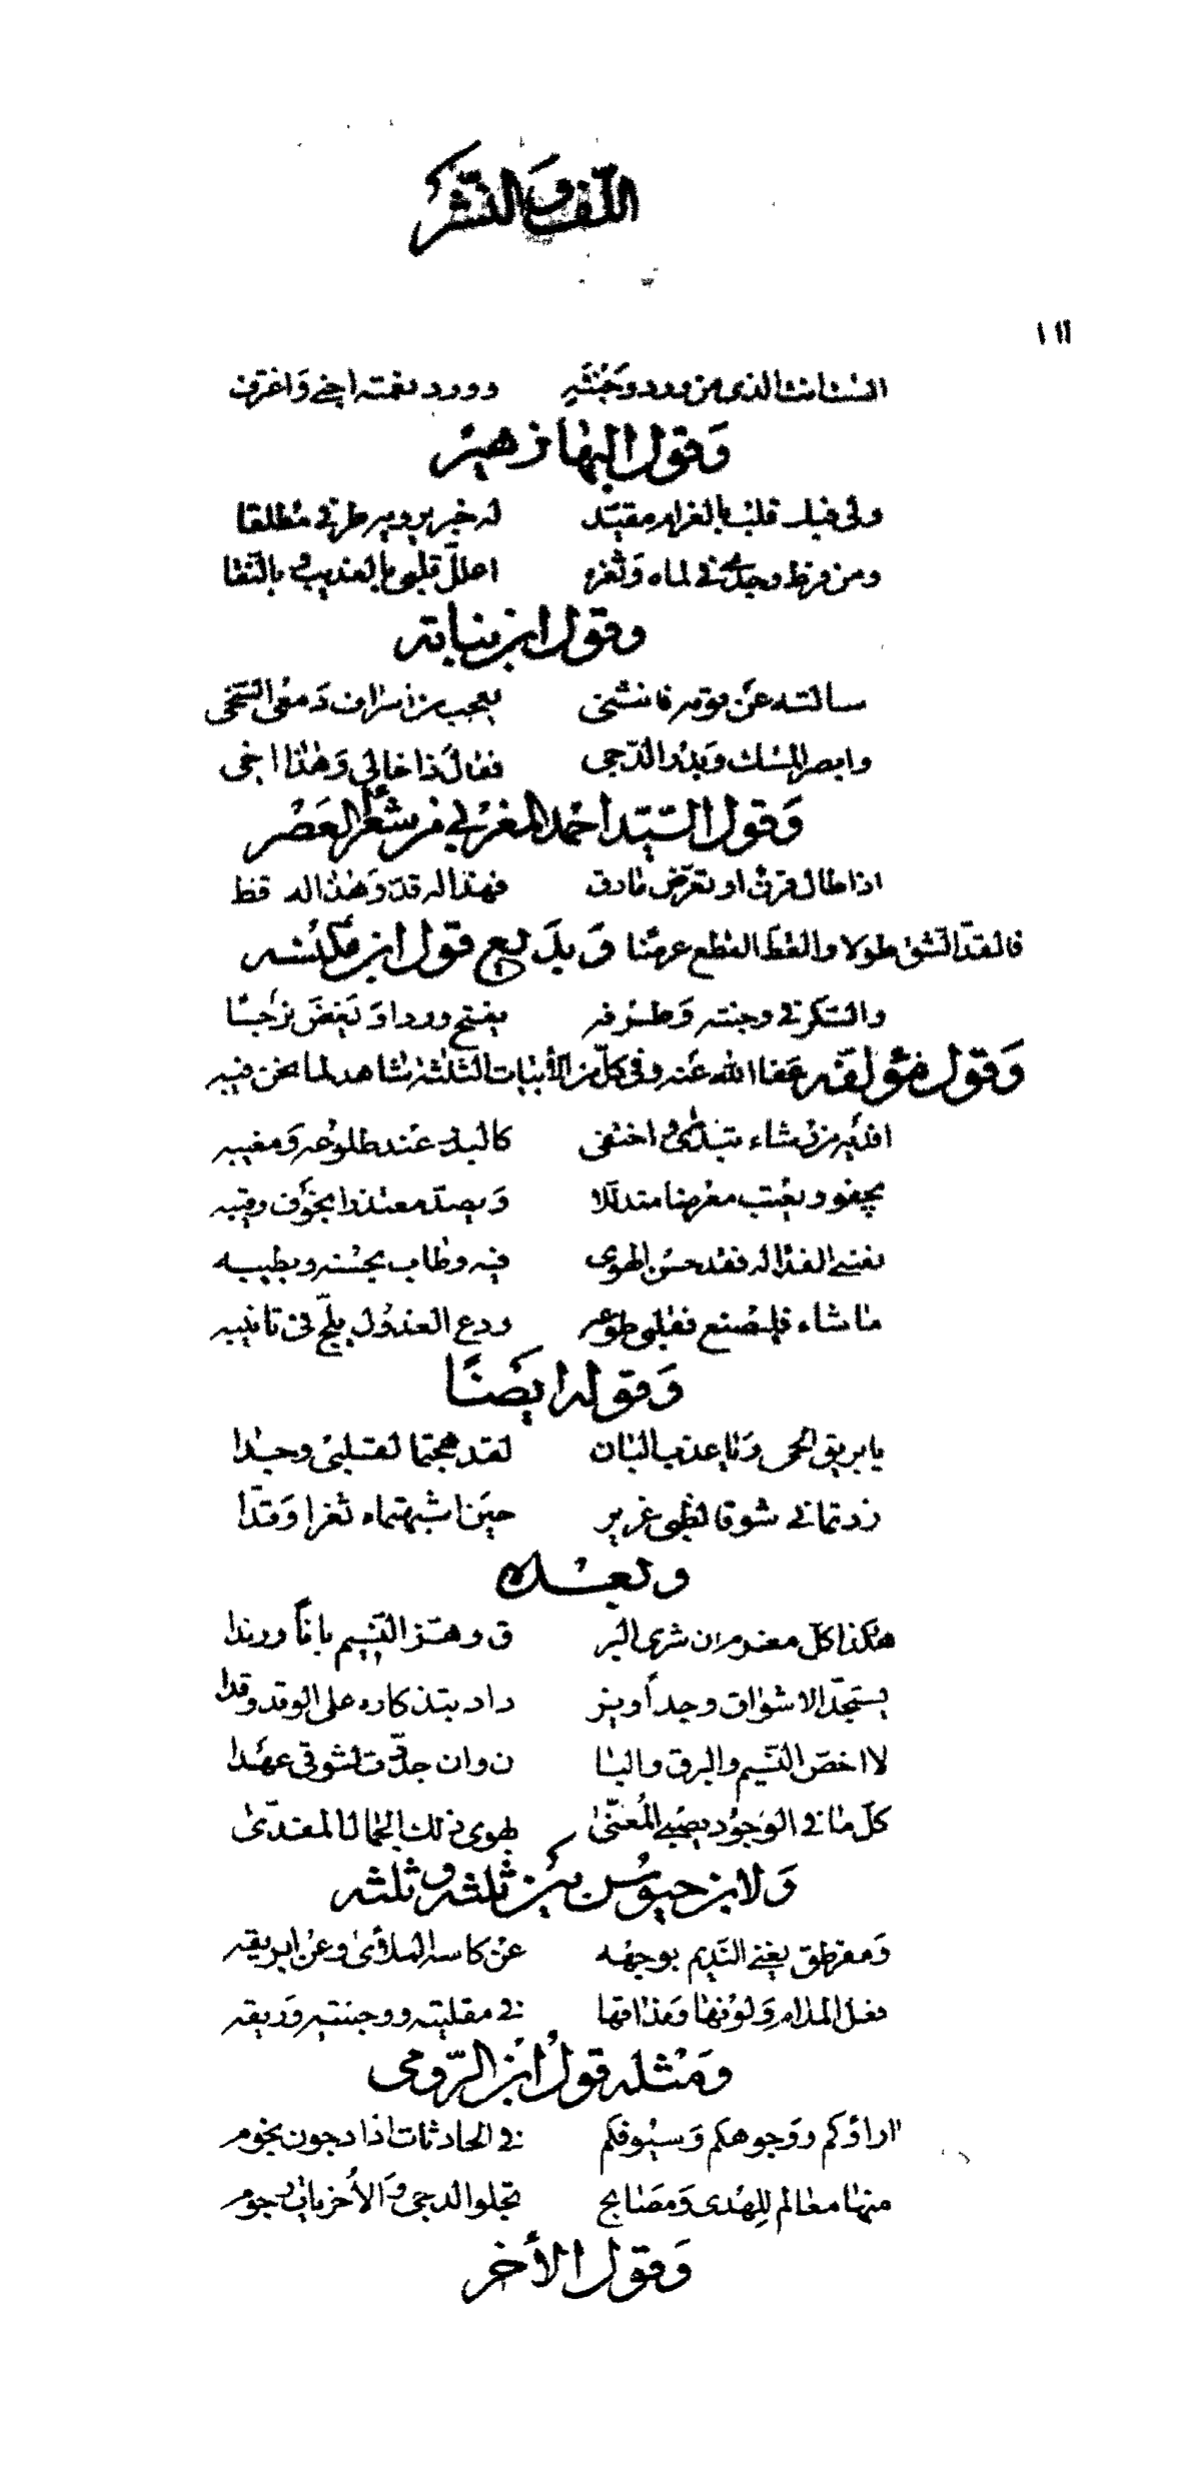 اللف والنشر
١١٦
الست انت الذي من ورد وجنته   وورد نعمته اجني واغترف
وقول البها زهير
ولي فيك قلب بالغرام مقيد   له خبر يرويه طرفي مطلقا
ومن فرط وجدي في لماه وثغره   اعلل قلبي بالعذيب وبالنقا
وقول ابن نباته
سالته عن قومه فانثنى   يعجب من اسراف دمعي السخي
وابصر المسك وبدر الدجى   فقال ذا خالي وهذا اخي
وقول السيد احمد المغربي من شعر العصر
اذا طال قرن او تعرض مارق   فهذا له قد وهذا له قط
فالقد الشق طولا والقط القطع عرضا وبديع قول ابن مكنسه
والسكر في وجنته وطرفه   يفتح وردا و يغض نرجسا
وقول مؤلفه عفا الله عنه وفي كل من الأبيات الثلثة شاهد لما نحن فيه
افديه من رشاء تبدى واختفى   كالبدر عند طلوعه ومغيبه
يجفو ويعتب مغرضا متدللا   ويصد معتذرا بخوف رقيبه
نفسي الفدا له فقد حسن الهوى   فيه وطاب بحسنه وبطيبه
ما شاء فليصنع فقلبي طوعه   ودع العذول يلج في تانيبه
وقوله ايضًا
يا بريق الحمى ويا عذب البان   لقد هجتما لقلبي وجدا
زدتماني شوقا لظبي غرير   حين اشبهتماه ثغرا وقدا
وبعده
هكذا كل مغرم ان شرى البر   ق وهز النسيم بانا ورندا
يستجد الاشواق وجداً ويز   داد بتذكاره على الوقد وقدا
لا اخص النسيم والبرق والبا   ن وان جددت لشوقي عهدا
كل ما في الوجود يصبي المعنى   بهوى ذلك الجمال المفدى
ولابن حيوس بين ثلثه وثلثه
ومقرطق يغني النديم بوجهه   عن كاسه الملأى وعن ابريقه
فعل المدام ولونها ومذاقها   في مقلتيه ووجنتيه وريقه
ومثله قول ابن الرومي
اراؤكم ووجوهكم وسيوفكم   في الحادثات اذا دجون نجوم
منها معالم للهدى ومصابح   تجلو الدجى والأخريات رجوم
وقول الأخر